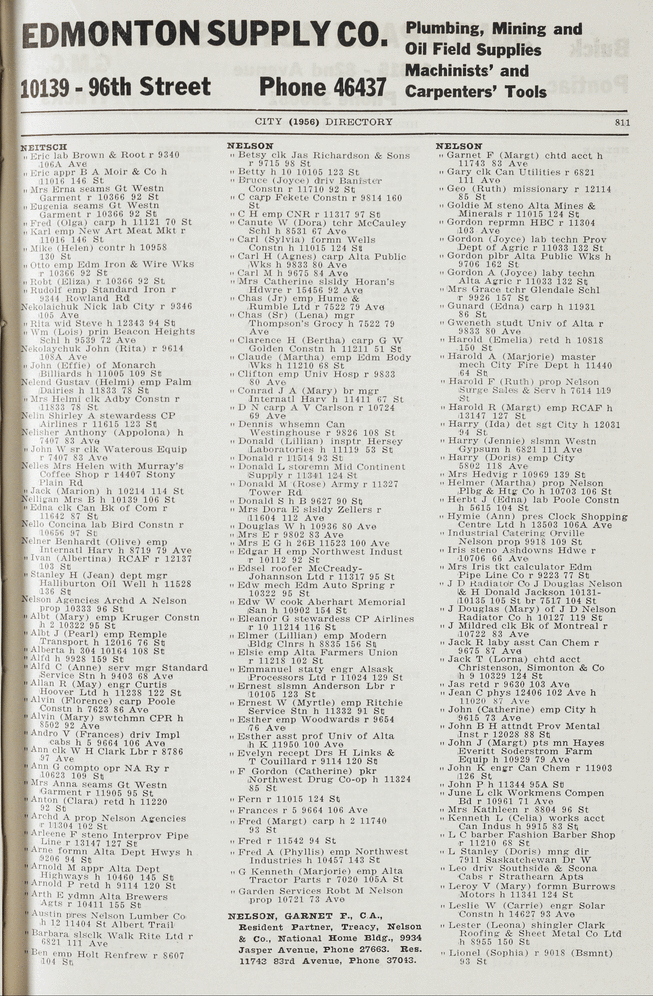 EDMONTON SUPPLY CO.
10139 - 96th Street Phone 46437
Plumbing, Mining and
Oil Field Supplies
Machinists' and
Carpenters' Tools
CITY (1956) DIRECTORY 811
NEITSCH
" Eric lab Brown & Root r 9340
106A Ave
" Eric appr B A Moir & Co h
11016 146 St
" Mrs Erna seams Gt Westn
Garment r 10366 92 St
" Eugenia seams Gt Westn
Garment r 10366 92 St
" Fred (Olga) carp h 11121 70 St
" Karl emp New Art Meat Mkt r
11016 146 St
" Mike (Helen) contr h 10958
130 St
" Otto emp Edm Iron & Wire Wks
r 10366 92 St
" Robt (Eliza) r 10366 92 St
" Rudolf emp Standard Iron r
9344 Rowland Rd
Nekolaichuk Nick lab City r 9346
105 Ave
" Rita wid Steve h 12343 94 St
" Wm (Lois) prin Beacon Heights
Schl h 9539 72 Ave
Nekolaychuk John (Rita) r 9614
108A Ave
" John (Effie) of Monarch
Billiards h 11005 109 St
Nelend Gustav (Helmi) emp Palm
Dairies h 11833 78 St
" Mrs Helmi clk Adby Constn r
11833 78 St
Nelin Shirley A stewardess CP
Airlines r 11615 123 St
Nelisher Anthony (Appolona) h
7407 83 Ave
" John W sr clk Waterous Equip
r 7407 83 Ave
Nelles Mrs Helen with Murray's
Coffee Shop r 14407 Stony
Plain Rd
" Jack (Marion) h 10214 114 St
Nelligan Mrs B h 10139 106 St
" Edna clk Can Bk of Com r
11642 87 St
Nello Concina lab Bird Constn r
10656 97 St
Nelner Benhardt (Olive) emp
Internatl Harv h 8719 79 Ave
" Ivan (Albertina) RCAF r 12137
103 St
" Stanley H (Jean) dept mgr
Halliburton Oil Well h 11528
136 St
Nelson Agencies Archd A Nelson
prop 10333 96 St
" Albt (Mary) emp Kruger Constn
h 2 10322 95 St
" Albt J (Pearl) emp Remple
Transport h 12016 76 St
" Alberta h 304 10164 108 St
" Alfd h 9928 159 St
" Alfd C (Anne) serv mgr Standard
Service Stn h 9403 68 Ave
" Allan R (May) engr Curtis
Hoover Ltd h 11238 122 St
" Alvin (Florence) carp Poole
Constn h 7623 86 Ave
" Alvin (Mary) swtchmn CPR h
8502 92 Ave
" Andro V (Frances) driv Impl
cabs h 5 9664 106 Ave
" Ann clk W H Clark Lbr r 8786
97 Ave
" Ann G compto opr NA Ry r
10623 109 St
" Mrs Anna seams Gt Westn
Garment r 11905 95 St
" Anton (Clara) retd h 11220
92 St
" Archd A prop Nelson Agencies
r 11304 102 St
" Arleene F steno Interprov Pipe
Line r 13147 127 St
" Arne formn Alta Dept Hwys h
9206 94 St
" Arnold M appr Alta Dept
Highways h 10460 145 St
" Arnold P retd h 9114 120 St
" Arth E ydmn Alta Brewers
Agts r 10411 155 St
" Austin pres Nelson Lumber Co
h 12 11404 St Albert Trail
" Barbara slsclk Walk Rite Ltd r
6821 111 Ave
" Ben emp Holt Renfrew r 8607
104 St
NELSON
" Betsy clk Jas Richardson & Sons
r 9715 98 St
" Betty h 10 10105 123 St
" Bruce (Joyce) driv Banister
Constn r 11710 92 St
" C carp Fekete Constn r 9814 160
St
" C H emp CNR r 11317 97 St
" Canute W (Dora) tchr McCauley
Schl h 8531 67 Ave
" Carl (Sylvia) formn Wells
Constn h 11015 124 St
" Carl H (Agnes) carp Alta Public
Wks h 9833 80 Ave
" Carl M h 9675 84 Ave
" Mrs Catherine slsldy Horan's
Hdwre r 15456 92 Ave
" Chas (Jr) emp Hume &
Rumble Ltd r 7522 79 Ave
" Chas (Sr) (Lena) mgr
Thompson's Grocy h 7522 79
Ave
" Clarence H (Bertha) carp G W
Golden Constn h 11211 51 St
" Claude (Martha) emp Edm Body
Wks h 11210 68 St
" Clifton emp Univ Hosp r 9833
80 Ave
" Conrad J A (Mary) br mgr
Internatl Harv h 11411 67 St
" D N carp A V Carlson r 10724
69 Ave
" Dennis whsemn Can
Westinghouse r 9826 108 St
" Donald (Lillian) insptr Hersey
Laboratories h 11119 53 St
" Donald r 11514 93 St
" Donald L storemn Mid Continent
Supply r 11341 124 St
" Donald M (Rose) Army r 11327
Tower Rd
" Donald S h B 9627 90 St
" Mrs Dora E slsldy Zellers r
11604 112 Ave
" Douglas W h 10936 80 Ave
" Mrs E r 9802 83 Ave
" Mrs E G h 26B 11523 100 Ave
" Edgar H emp Northwest Indust
r 10112 92 St
" Edsel roofer McCready-
Johannson Ltd r 11317 95 St
" Edw mech Edm Auto Spring r
10322 95 St
" Edw W cook Aberhart Memorial
San h 10902 154 St
" Eleanor G stewardess CP Airlines
r 10 11214 116 St
" Elmer (Lillian) emp Modern
Bldg Clnrs h 8835 156 St
" Elsie emp Alta Farmers Union
r 11218 102 St
" Emmanuel staty engr Alsask
Processors Ltd r 11024 129 St
" Ernest slsmn Anderson Lbr r
10105 123 St
" Ernest W (Myrtle) emp Ritchie
Service Stn h 11332 91 St
" Esther emp Woodwards r 9654
76 Ave
" Esther asst prof Univ of Alta
h K 11950 100 Ave
" Evelyn recept Drs H Links &
T Couillard r 9114 120 St
" F Gordon (Catherine) pkr
Northwest Drug Co-op h 11324
85 St
" Fern r 11015 124 St
" Frances r 5 9664 106 Ave
" Fred (Margt) carp h 2 11740
93 St
" Fred r 11542 94 St
" Fred A (Phyllis) emp Northwest
Industries h 10457 143 St
" G Kenneth (Marjorie) emp Alta
Tractor Parts r 7020 105A St
" Garden Services Robt M Nelson
prop 10721 73 Ave
NELSON, GARNET F., C.A.,
Resident Partner, Treacy, Nelson
& Co., National Home Bldg., 9934
Jasper Avenue, Phone 27663. Res.
11743 83rd Avenue, Phone 37043.
NELSON
" Garnet F (Margt) chtd acct h
11743 83 Ave
" Gary clk Can Utilities r 6821
111 Ave
" Geo (Ruth) missionary r 12114
85 St
" Goldie M steno Alta Mines &
Minerals r 11015 124 St
" Gordon reprmn HBC r 11304
103 Ave
" Gordon (Joyce) lab techn Prov
Dept of Agric r 11033 132 St
" Gordon plbr Alta Public Wks h
9706 162 St
" Gordon A (Joyce) laby techn
Alta Agric r 11033 132 St
" Mrs Grace tchr Glendale Schl
r 9926 157 St
" Gunard (Edna) carp h 11931
86 St
" Gweneth studt Univ of Alta r
9833 80 Ave
" Harold (Emelia) retd h 10818
150 St
" Harold A (Marjorie) master
mech City Fire Dept h 11440
64 St
" Harold F (Ruth) prop Nelson
Surge Sales & Serv h 7614 119
St
" Harold R (Margt) emp RCAF h
13147 127 St
" Harry (Ida) det sgt City h 12031
94 St
" Harry (Jennie) slsmn Westn
Gypsum h 6821 111 Ave
" Harry (Doris) emp City
5802 118 Ave
" Mrs Hedvig r 10969 139 St
" Helmer (Martha) prop Nelson
Plbg & Htg Co h 10703 106 St
" Herbt J (Edna) lab Poole Constn
h 5615 104 St
" Hymie (Ann) pres Clock Shopping
Centre Ltd h 13503 106A Ave
" Industrial Catering Orville
Nelson prop 9918 109 St
" Iris steno Ashdowns Hdwe r
10706 66 Ave
" Mrs Iris tkt calculator Edm
Pipe Line Co r 9223 77 St
" J D Radiator Co J Douglas Nelson
& H Donald Jackson 10131-
10135 105 St br 7517 104 St
" J Douglas (Mary) of J D Nelson
Radiator Co h 10127 119 St
" J Mildred clk Bk of Montreal r
10722 83 Ave
" Jack R laby asst Can Chem r
9675 87 Ave
" Jack T (Lorna) chtd acct
Christenson, Simonton & Co
h 9 10329 124 St
" Jas retd r 9630 103 Ave
" Jean C phys 12406 102 Ave h
11020 87 Ave
" John (Catherine) emp City h
9615 73 Ave
" John B H attndt Prov Mental
Jnst r 12028 88 St
" John J (Margt) pts mn Hayes
Everitt Soderstrom Farm
Equip h 10929 79 Ave
" John K engr Can Chem r 11903
126 St
" John P h 11344 95A St
" June L clk Workmens Compen
Bd r 10961 71 Ave
" Mrs Kathleen r 8804 96 St
" Kenneth L (Celia) works acct
Can Indus h 9915 83 St
" L C barber Fashion Barber Shop
r 11210 68 St
" L Stanley (Doris) mng dir
7911 Saskatchewan Dr W
" Leo driv Southside & Scona
Cabs r Strathearn Apts
" Leroy V (Mary) formn Burrows
Motors h 11341 124 St
" Leslie W (Carrie) engr Solar
Constn h 14627 93 Ave
" Lester (Leona) shingler Clark
Roofing & Sheet Metal Co Ltd
h 8955 150 St
" Lionel (Sophia) r 9018 (Bsmnt)
93 St